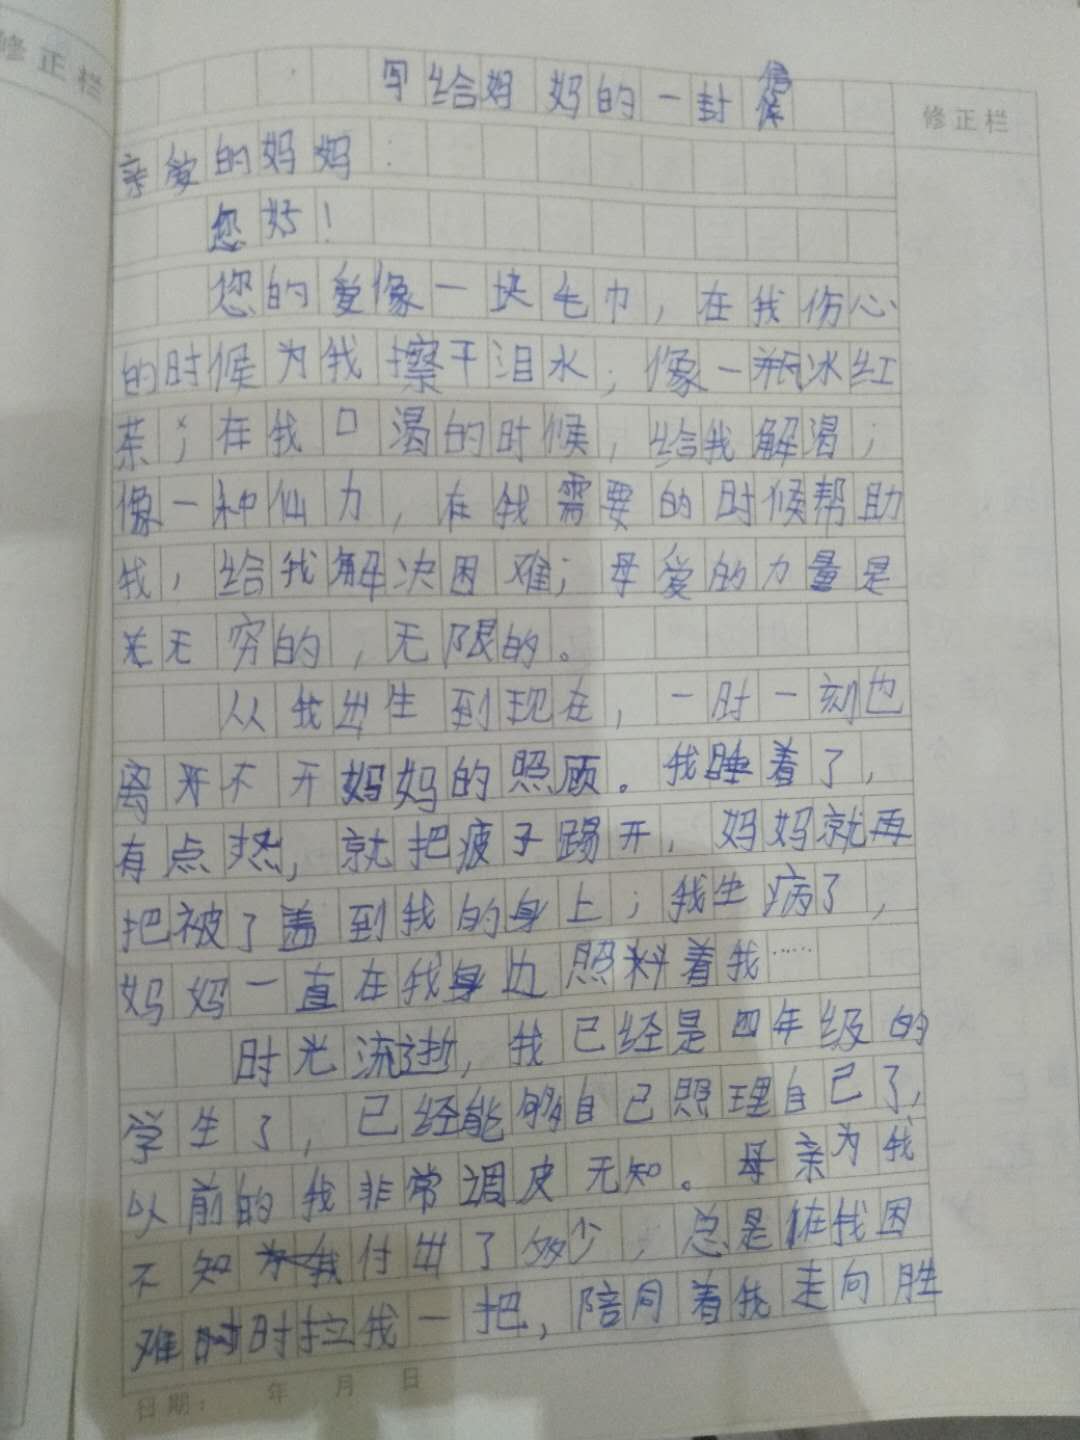 修正栏
修正栏
写给妈妈的一封信
亲爱的妈妈：
您好！
您的爱像一块毛巾，在我伤心
的时候为我擦干泪水；像一瓶冰红
茶；在我口渴的时候，给我解渴；
像一种仙力，在我需要的时候帮助
我，给我解决困难；母爱的力量是
无穷的，无限的。
从我出生到现在，一时一刻也
离不开妈妈的照顾。我睡着了，
有点热，就把疲子踢开，妈妈就再
把被了盖到我的身上；我生病了，
妈妈一直在我身边照料着我……
时光流逝，我已经是四年级的
学生了，已经能够自己照理自己了，
以前的我非常调皮无知。母亲为我
不知付出了多少，总是在我困
难时拉我一把，陪同着我走向胜
日期： 年 月 日